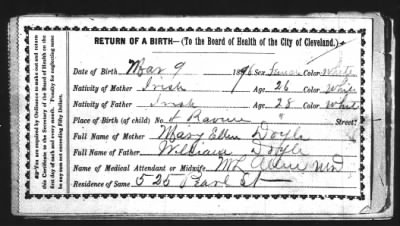 RETURN OF A BIRTH—(To the Board of Health of the City of Cleveland.)
Date of Birth Mar 9 1896 Sex Color White
Nativity of Mother Irish Age 26 Color White
Nativity of Father Irish Age 28 Color Whit
Place of Birth (of child) No. 4 Ravine " Street
Full Name of Mother Mary Ellen Doyle
Full Name of Father William Doyle
Name of Medical Attendant or Midwife, M.D
Residence of Same 525 Pearl St
You are required by Ordinance to make out and return
this Certificate to the Secretary of the Board of Health on the
first day of each and every month. Penalty for neglecting same
not exceeding Fifty Dollars.